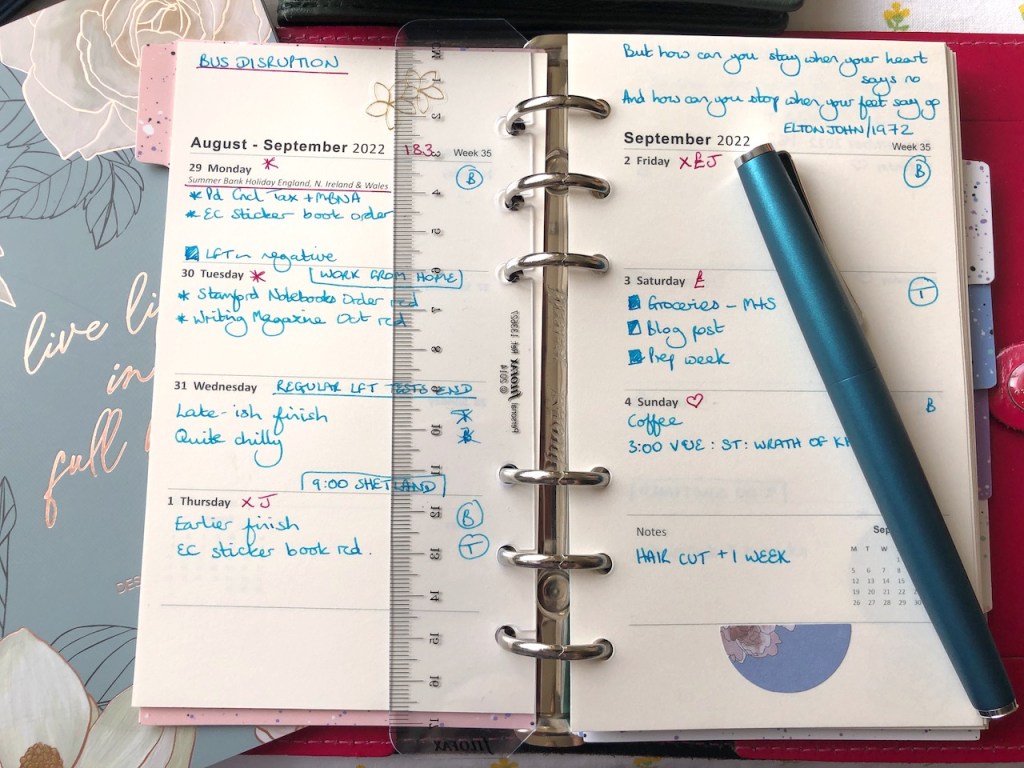 BUS DISRUPTION
August - September 2022
183
Week 35
29 Monday *
B
Summer Bank Holiday England, N. Ireland & Wales
* Pd Cncl Tax + MBNA
* EC sticker book order
LFT negative
30 Tuesday *
WORK FROM HOME
* Stamford Notebooks Order rcd
* Writing Magazine Oct rcd
31 Wednesday REGULAR LFT TESTS END
Late-ish finish
Quite chilly
9:00 SHETLAND
1 Thursday X J
B
Earlier finish
EC sticker book rcd.
T
But how can you stay when your heart
says no
And how can you stop when your feet say go
ELTON JOHN/1972
September 2022
Week 35
2 Friday X £ J
B
3 Saturday £
T
Groceries - M+S
Blog post
Prep week
4 Sunday ♡
B
Coffee
3:00 VUE: ST: WRATH OF KH
Notes
Sep
HAIR CUT + 1 WEEK
M T W
5 6 7 8 9
12 13 14 15 16
19 20 21 22 23
26 27 28 29 30
live li
in
full
DES
filofax